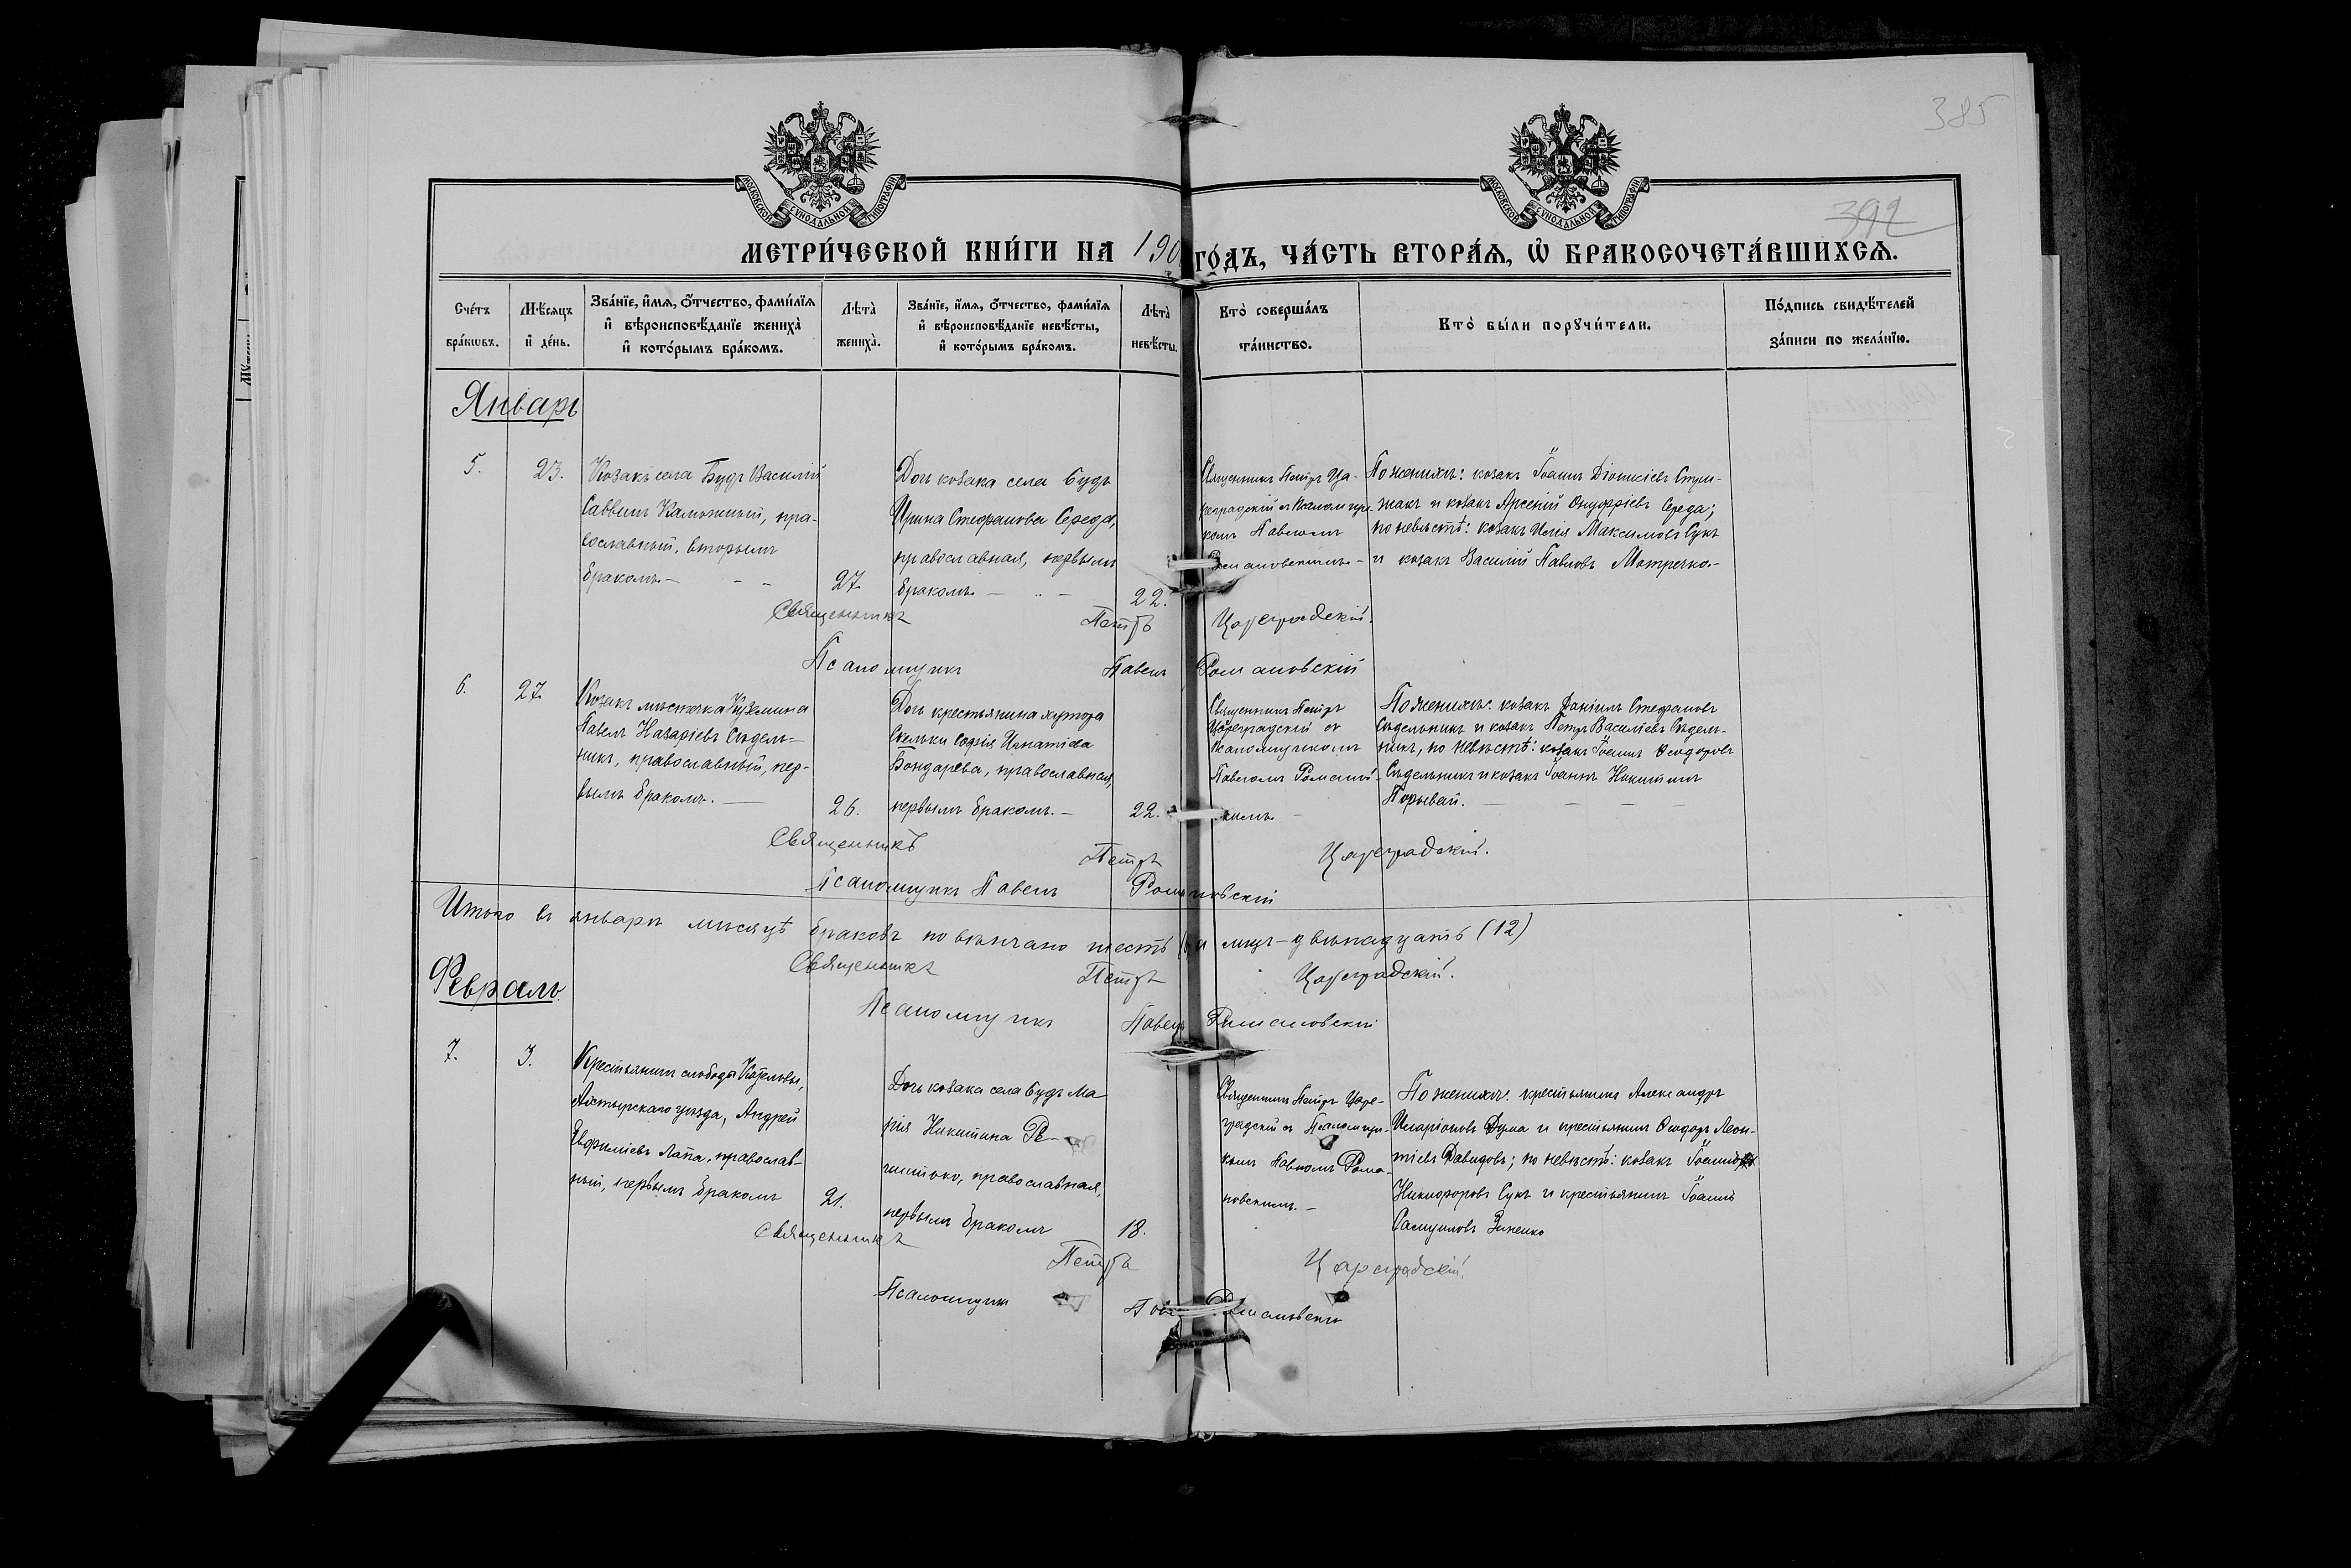 385
392
МОСКОВСКОЙ СѴНОДАЛЬНОЙ ТИПОГРАФІИ
МОСКОВСКОЙ СѴНОДАЛЬНОЙ ТИПОГРАФІИ
МЕТРИ́ЧЕСКОЙ КНИ́ГИ НА 190 ГО́ДЪ, ЧА́СТЬ ВТОРА́Я, Ѡ БРАКОСОЧЕТА́ВШИХСЯ.
Сче́тъ
бра́кѡвъ.
Мѣ́сяцъ
и҆ де́нь.
Зва́нїе, и҆́мя, ѻ҆́тчество, фами́лїя
и҆ вѣроисповѣ́данїе жениха̀
и҆ кото́рымъ бра́комъ.
Лѣта̀
жениха̀.
Зва́нїе, и҆́мя, ѻ҆́тчество, фами́лїя
и҆ вѣроисповѣ́данїе невѣ́сты,
и҆ кото́рымъ бра́комъ.
Лѣта̀
невѣ́сты.
Кто̀ соверша́лъ
та́инство.
Кто̀ бы́ли порꙋчи́тели.
По́дпись свидѣ́телей
за́писи по жела́нїю.
Январь
5.
23.
Козакъ села Будъ Василій
Саввинъ Калюжный, пра-
вославный, вторымъ
бракомъ. -
27.
Дочь козака села Будъ
Ирина Стефанова Середа,
православная, первымъ
бракомъ. -
22.
Священникъ Петръ Ца-
реградскій съ Псаломщи-
комъ Павломъ
Романовскимъ. -
По женихѣ: козакъ Іоаннъ Діонисіевъ Стри-
жакъ и козакъ Арсеній Онуфріевъ Середа;
по невѣстѣ: козакъ Илія Максимовъ Сукъ
и козакъ Василій Павловъ Мотречко. -
Священникъ Петръ Цареградскій.
Псаломщикъ Павелъ Романовскій
6.
27.
Козакъ мѣстечка Куземина
Павелъ Назаріевъ Сѣдель-
никъ, православный, пер-
вымъ бракомъ. -
26.
Дочь крестьянина хутора
Скельки Софія Игнатіева
Бондарева, православная,
первымъ бракомъ. -
22.
Священникъ Петръ
Цареградскій съ
Псаломщикомъ
Павломъ
кимъ. -
По женихѣ: козакъ Даніилъ Стефановъ
Сѣдельникъ и козакъ Петръ Василіевъ Сѣдель-
никъ, по невѣстѣ: козакъ Іоаннъ Ѳеодоровъ
Сѣдельникъ и козакъ Іоаннъ Никитинъ
Порывай. -
Священникъ Петръ Цареградскій.
Псаломщикъ Павелъ Романовскій
Итого въ январѣ мѣсяцѣ браковъ повѣнчано шесть (6) и лицъ - двѣнадцать (12)
Священникъ Петръ Цареградскій.
Псаломщикъ Павелъ Романовскій
Февраль
7.
3.
Крестьянинъ слободы Котельвы,
Ахтырскаго уѣзда, Андрей
Евфиміевъ Лапа, православ-
ный, первымъ бракомъ
21.
Дочь козака села Будъ Ма-
рія Никитина
православная,
первымъ бракомъ
18.
Священникъ Петръ Царе-
градскій съ Псаломщи-
комъ Павломъ Рома-
новскимъ. -
По женихѣ: крестьянинъ Александръ
Иларіоновъ Дума и крестьянинъ Ѳеодоръ Леон-
тіевъ Давидовъ; по невѣстѣ: козакъ Іоаннъ
Никифоровъ Сукъ и крестьянинъ Іоаннъ
Самуиловъ Зиненко
Священникъ Петръ Цареградскій.
Псаломщикъ Романовскій